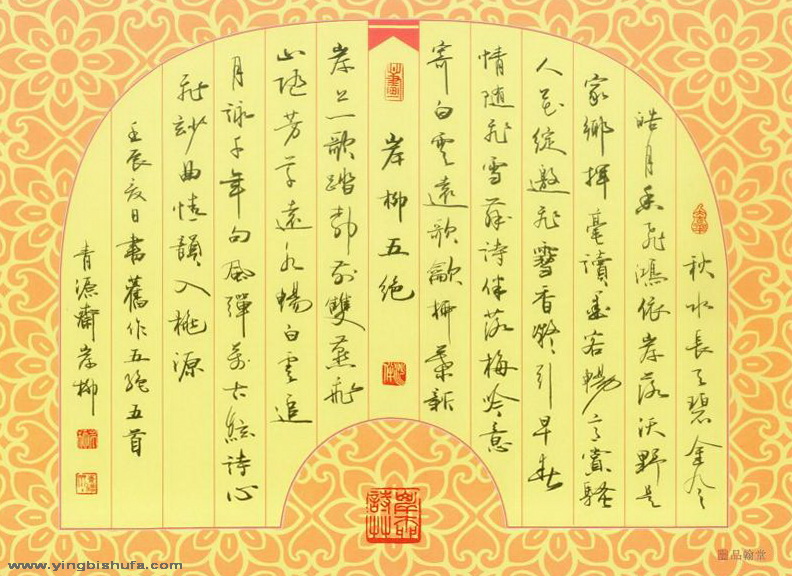 秋水長天碧金
皓月香飛鴻依岸落沃野是
家鄉揮毫讀畫客暢言賞騷
人花綻邀飛雪香凝引早春
情隨飛雪舞詩伴落梅吟意
寄白雲遠歌歙柳葉新
岸柳五絕
岸上一歌踏前雙燕飛
山隨芳草遠水暢白雲追
月詠千年句風彈萬古弦詩心
飛妙曲情韻入桃源
壬辰夏日書舊作五絕五首
青源齋岸柳
www.yingbishufa.com
品翰堂